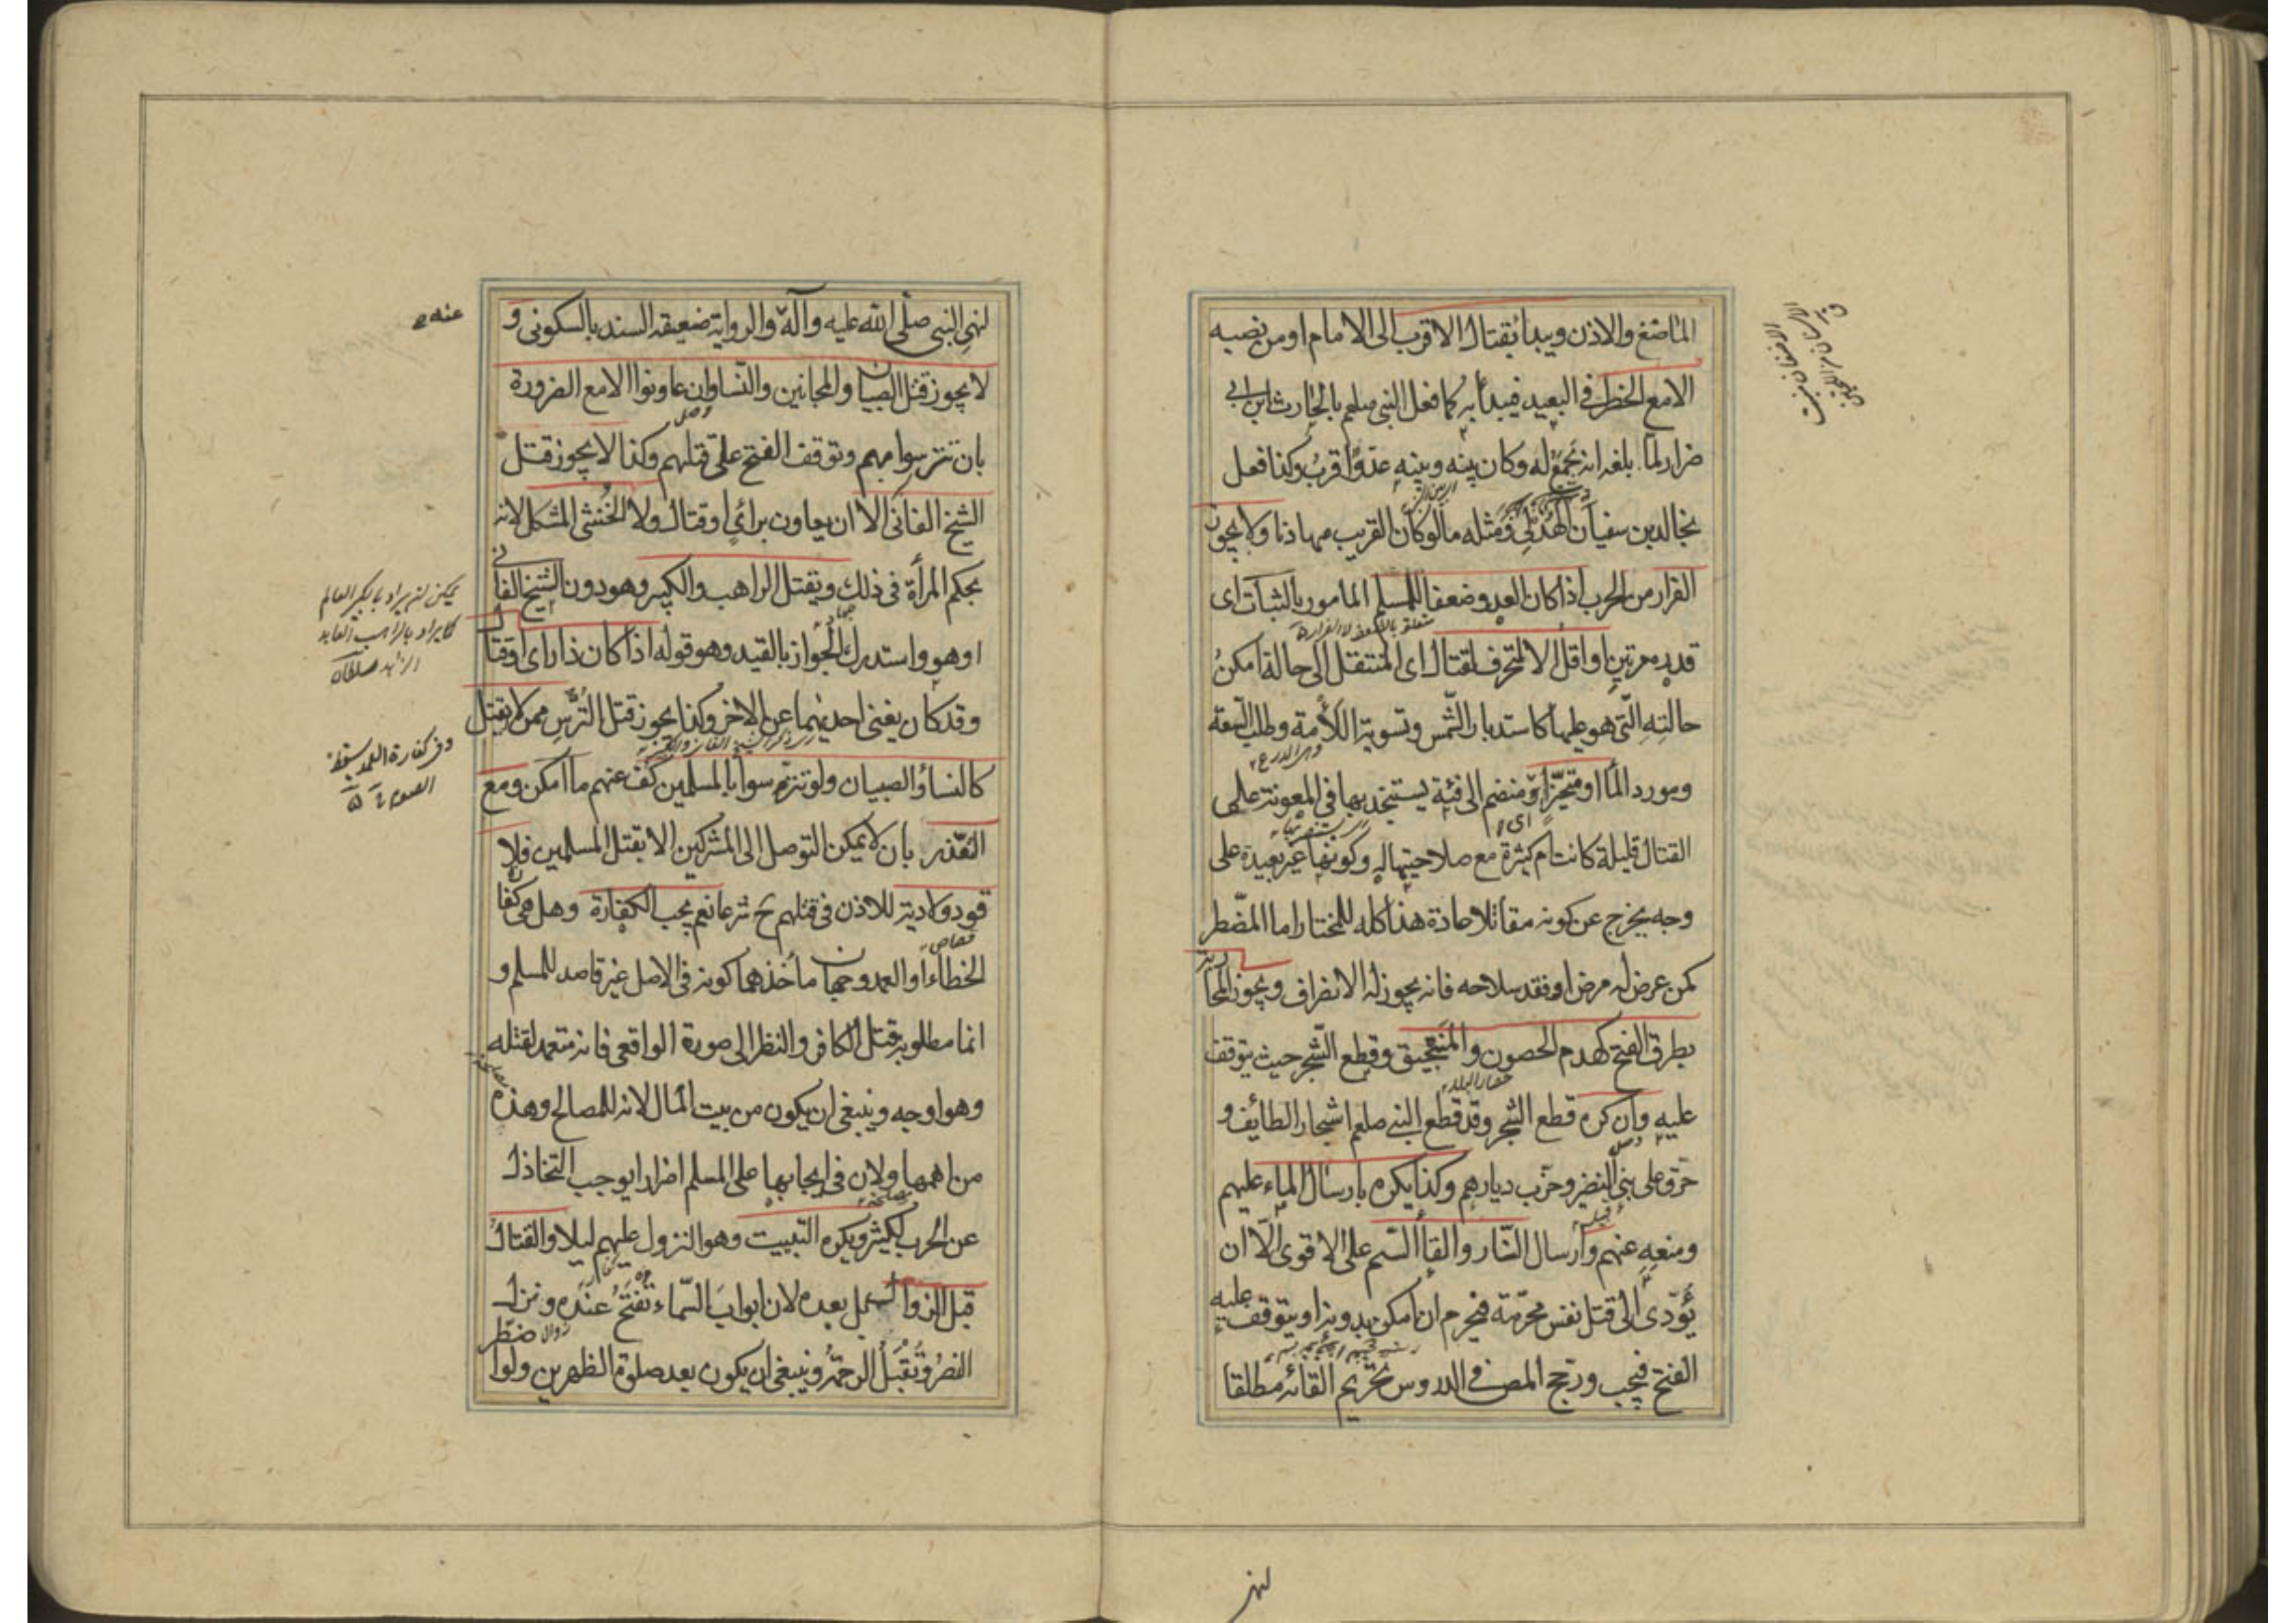 المانع والاذن ويبدأ بقتال الاقرب الى الامام او من نصبه
الا مع الخطر فى البعيد فيبدأ به كما فعل النبى صلعم بالحارث ابن ابى
ضرار لما بلغه انه يجمع له وكان بينه وبينه عدوّ اقرب وكذا فعل
بخالد بن سفيان الهذلى ومثله ما لو كان القريب مهادنا ولا يجوز
الفرار من الحرب اذا كان العدو ضعفا للمسلم المأمور بالثبات اى
متعلق بالضعف لا الفرار
قدره مرتين او اقل الا لمتحرف لقتال اى المنتقل الى حالة امكن
حالته التى هو عليها كاستدبار الشمس وتسوية اللأمة وطلب السعة
وهى الدرع
ومورد الماء او متحيّزا اى منضم الى فئة يستنجد بها فى المعونة على
القتال قليلة كانت ام كثيرة مع صلاحيتها له وكونها غير بعيدة على
وجه يخرج عن كونه مقاتلا عادة هذا كله للمختار اما المضطر
كمن عرض له مرض او فقد سلاحه فانه يجوز له الانصراف ويجوز المحاربة
بطرق الفتح كهدم الحصون والمنجنيق وقطع الشجر حيث يتوقف
حصار البلد
عليه وان كره قطع الشجر وقد قطع النبى صلعم اشجار الطائف و
حرق على بنى النضير وخرب ديارهم وكذا يكره بارسال الماء عليهم
قبيلة
ومنعه عنهم وارسال النار والقاء السم على الاقوى الّا ان
يؤدى الى قتل نفس محرمة فيحرم ان امكن بدونه او يتوقف عليه
الفتح فيجب ورجح المص فى الدروس تحريم القائه مطلقا
لنهى
لنهى النبى صلّى الله عليه وآله والرواية ضعيفة السند بالسكونى و
لا يجوز قتل الصبيان والمجانين والنساء وان عاونوا الا مع الضرورة
وصل
بان تترسوا بهم وتوقف الفتح على قتلهم وكذا لا يجوز قتل
الشيخ الفانى الا ان يعاون برأى او قتال ولا الخنثى المشكل لانه
بحكم المرأة فى ذلك ويقتل الراهب والكبير وهو دون الشيخ الفانى
او هو واستدرك الجواز بالقيد وهو قوله اذا كان ذا رأى او قتال
وقد كان يغنى احديهما عن الاخر وكذا يجوز قتل الترس ممن لا يقتل
كالنساء والصبيان ولو تترسوا بالمسلمين كف عنهم ما امكن ومع
التعذر بان لا يمكن التوصل الى المشركين الا بقتل المسلمين فلا
قود ولا دية للاذن فى قتلهم ح شرعا نعم يجب الكفارة وهل هى كفارة
قصاص
الخطاء او العمد وجهان مأخذهما كونه فى الاصل غير قاصد للمسلم و
انما مطلوبه قتل الكافر والنظر الى صورة الواقعى فانه متعمد لقتله
وهو اوجه وينبغى ان يكون من بيت المال لانه للمصالح وهذه
من اهمها ولان فى ايجابها على المسلم اضرارا يوجب التخاذل
عن الحرب لكثير ويكره التبييت وهو النزول عليهم ليلا والقتال
قبل الزوال بل بعده لان ابواب السماء تفتح عنده وينزل
النصر وتقبل الرحمة وينبغى ان يكون بعد صلوة الظهرين ولو اضطر
عنه
يمكن ان يراد بالكبير العالم
كما يراد بالراهب العابد
الزاهد سلطان
وفى كفارة العمد يسقط
الصوم